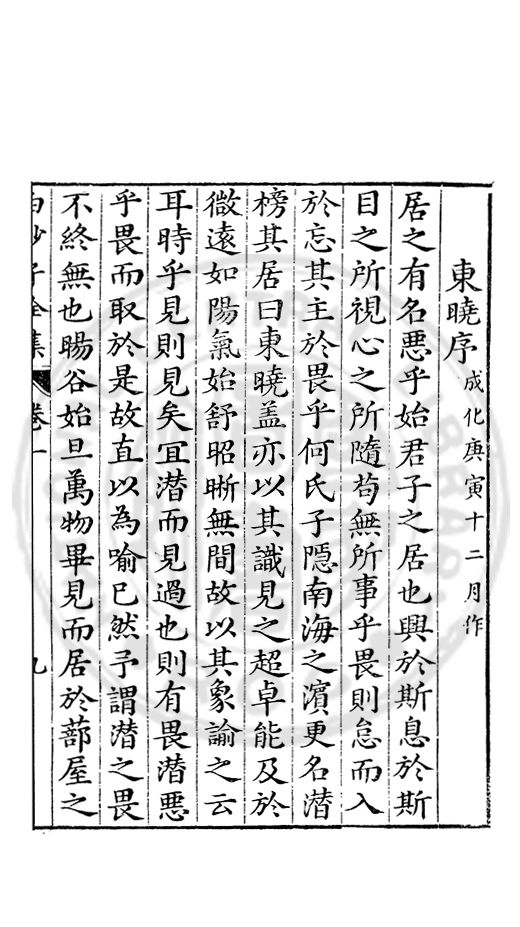 東曉序成化庚寅十二月作
居之有名惡乎始君子之居也興於斯息於斯
目之所視心之所隨苟無所事乎畏則怠而入
於忘其主於畏乎何氏子隱南海之濵更名潜
榜其居曰東曉盖亦以其識見之超卓能及於
微遠如陽氣始舒昭晰無間故以其象諭之云
耳時乎見則見矣冝潜而見過也則有畏潜惡
乎畏而取於是故直以為喻已然予謂潜之畏
不終無也暘谷始旦萬物畢見而居於蔀屋之
白沙子全集 卷一 九